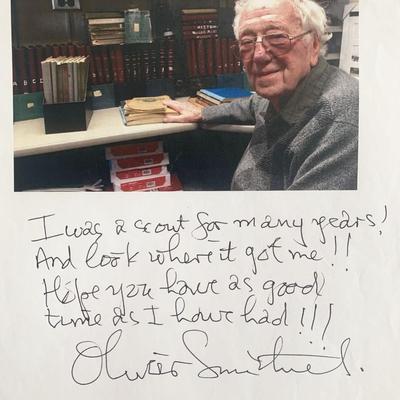 I was a scout for many years!
And look where it got me!!
Hope you have as good
time as I have had!!!
Oliver Smithies.